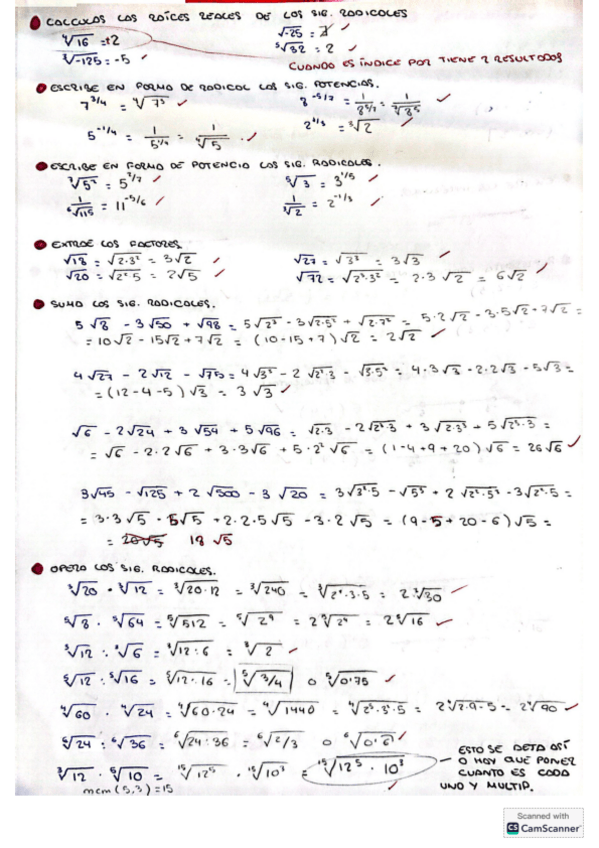 CALCULA LAS RAÍCES REALES DE LAS SIG. RADICALES
⁴√16 = ±2 √-25 = ∄ ✓
³√-125 = -5 ✓ ⁵√32 = 2 ✓
CUANDO ES ÍNDICE PAR TIENE 2 RESULTADOS
ESCRIBE EN FORMA DE RADICAL LAS SIG. POTENCIAS.
7^3/4 = ⁴√7³ ✓ 8^-5/7 = 1/8^5/7 = 1/⁷√8⁵ ✓
5^-1/4 = 1/5^1/4 = 1/⁴√5 . ✓ 2^1/3 = ³√2 ✓
ESCRIBE EN FORMA DE POTENCIA LOS SIG. RADICALES.
√3 = 3^1/5 ✓
1/⁶√11⁵ = 11^-5/6 ✓ 1/³√2 = 2^-1/3 ✓
EXTRAE LOS FACTORES.
√18 = √2·3² = 3√2 ✓ √27 = √3³ = 3√3 ✓
√20 = √2²·5 = 2√5 ✓ √72 = √2³·3² = 2·3√2 = 6√2 ✓
SUMA LOS SIG. RADICALES.
5√8 - 3√50 + √98 = 5√2³ - 3√2·5² + √2·7² = 5·2√2 - 3·5√2 + 7√2 =
= 10√2 - 15√2 + 7√2 = (10-15+7)√2 = 2√2 ✓
4√27 - 2√12 - √75 = 4√3³ - 2√2²·3 - √3·5² = 4·3√3 - 2·2√3 - 5√3 =
= (12-4-5)√3 = 3√3 ✓
√6 - 2√24 + 3√54 + 5√96 = √2·3 - 2√2³·3 + 3√2·3³ + 5√2⁵·3 =
= √6 - 2·2√6 + 3·3√6 + 5·2²√6 = (1-4+9+20)√6 = 26√6 ✓
3√45 - √125 + 2√500 - 3√20 = 3√3²·5 - √5³ + 2√2²·5³ - 3√2²·5 =
= 3·3√5 - 5√5 + 2·2·5√5 - 3·2√5 = (9-5+20-6)√5 =
= 18√5
OPERA LOS SIG. RADICALES.
³√20 · ³√12 = ³√20·12 = ³√240 = ³√2⁴·3·5 = 2³√30 ✓
⁵√8 · ⁵√64 = ⁵√512 = ⁵√2⁹ = 2⁵√2⁴ = 2⁵√16 ✓
√12 : √6 = √12:6 = √2 ✓
⁵√12 : ⁵√16 = ⁵√12:16 = ⁵√3/4 o ⁵√0'75 ✓
⁴√60 · ⁴√24 = ⁴√60·24 = ⁴√1440 = ⁴√2⁵·3²·5 = 2⁴√2·9·5 = 2⁴√90 ✓
⁶√24 : ⁶√36 = ⁶√24:36 = ⁶√2/3 o ⁶√0'6 ✓
³√12 · ⁵√10 = ¹⁵√12⁵ · ¹⁵√10³ = ¹⁵√12⁵ · 10³
mcm (5,3) = 15
ESTO SE DEJA ASÍ
O HAY QUE PONER
CUANTO ES CADA
UNO Y MULTIP.
Scanned with
CS CamScanner